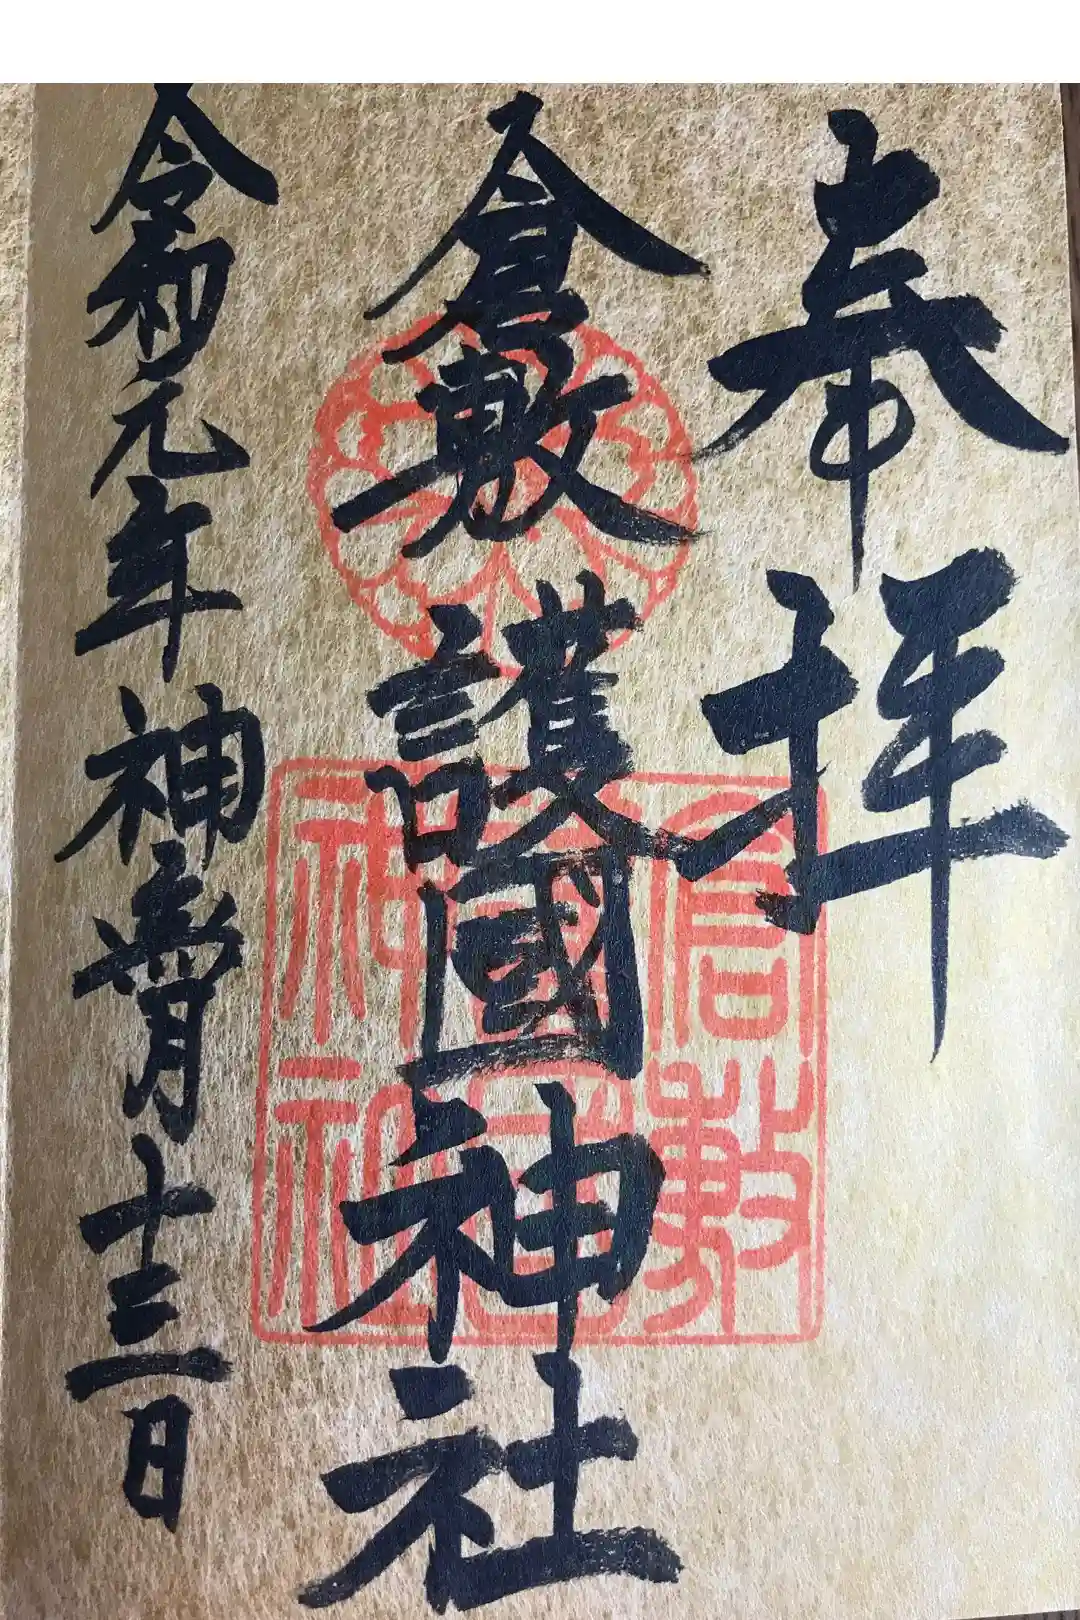 奉拝
倉敷護國神社
令和元年神嘗月十三日
倉敷
神社